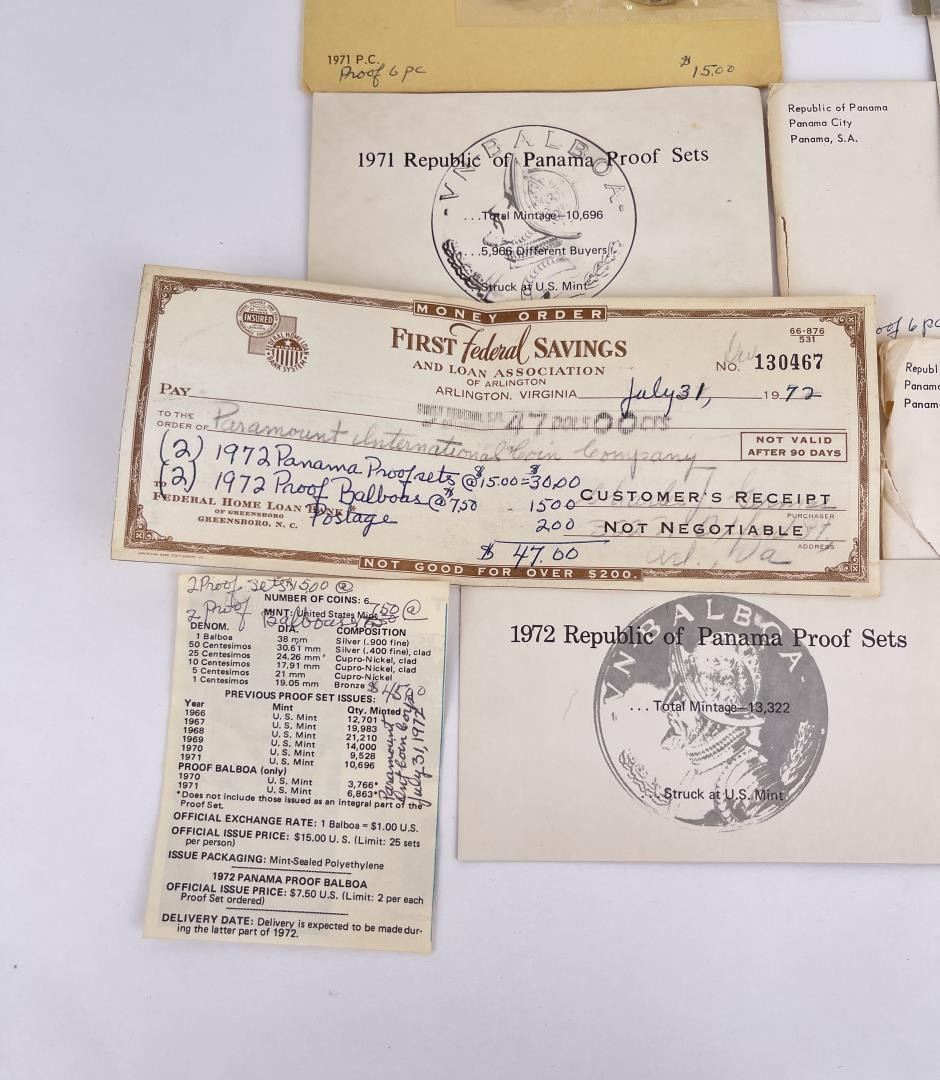 1971 P.C.
Proof 6 pc
$15.00
1971 Republic of Panama Proof Sets
VN BALBOA
...Total Mintage—10,696
...5,966 Different Buyers
...Struck at U.S. Mint
Republic of Panama
Panama City
Panama, S.A.
oof 6 pc
Republ
Panama
Panam
MONEY ORDER
INSURED
FEDERAL HOME LOAN BANK SYSTEM
MEMBER
FIRST Federal SAVINGS
AND LOAN ASSOCIATION
OF ARLINGTON
ARLINGTON, VIRGINIA
July 31, 1972
66-876
531
NO. 130467
PAY
47 DOLS 00 CTS
TO THE
ORDER OF Paramount International Coin Company
NOT VALID
AFTER 90 DAYS
(2) 1972 Panama Proof sets @ $15.00 = $30.00
(2) 1972 Proof Balboas @ $7.50 1500
Postage 200
$ 47.00
TO
FEDERAL HOME LOAN BANK
OF GREENSBORO
GREENSBORO, N. C.
CUSTOMER'S RECEIPT
PURCHASER
NOT NEGOTIABLE
ADDRESS
Arl, Va
NOT GOOD FOR OVER $200.
2 Proof Sets $15.00 @
NUMBER OF COINS: 6
2 Proof Balboas 7.50 @
MINT: United States Mint
DENOM. DIA. COMPOSITION
1 Balboa 38 mm Silver (.900 fine)
50 Centesimos 30.61 mm Silver (.400 fine), clad
25 Centesimos 24.26 mm Cupro-Nickel, clad
10 Centesimos 17.91 mm Cupro-Nickel, clad
5 Centesimos 21 mm Cupro-Nickel
1 Centesimos 19.05 mm Bronze
$45.00
PREVIOUS PROOF SET ISSUES:
Year Mint Qty. Minted
1966 U. S. Mint 12,701
1967 U. S. Mint 19,983
1968 U. S. Mint 21,210
1969 U. S. Mint 14,000
1970 U. S. Mint 9,528
1971 U. S. Mint 10,696
PROOF BALBOA (only)
1970 U. S. Mint 3,766*
1971 U. S. Mint 6,863*
Paramount
Int Coin Corp
July 31, 1972
*Does not include those issued as an integral part of the
Proof Set.
OFFICIAL EXCHANGE RATE: 1 Balboa = $1.00 U.S.
OFFICIAL ISSUE PRICE: $15.00 U. S. (Limit: 25 sets
per person)
ISSUE PACKAGING: Mint-Sealed Polyethylene
1972 PANAMA PROOF BALBOA
OFFICIAL ISSUE PRICE: $7.50 U.S. (Limit: 2 per each
Proof Set ordered)
DELIVERY DATE: Delivery is expected to be made dur-
ing the latter part of 1972.
1972 Republic of Panama Proof Sets
VN BALBOA
...Total Mintage—13,322
...Struck at U.S. Mint